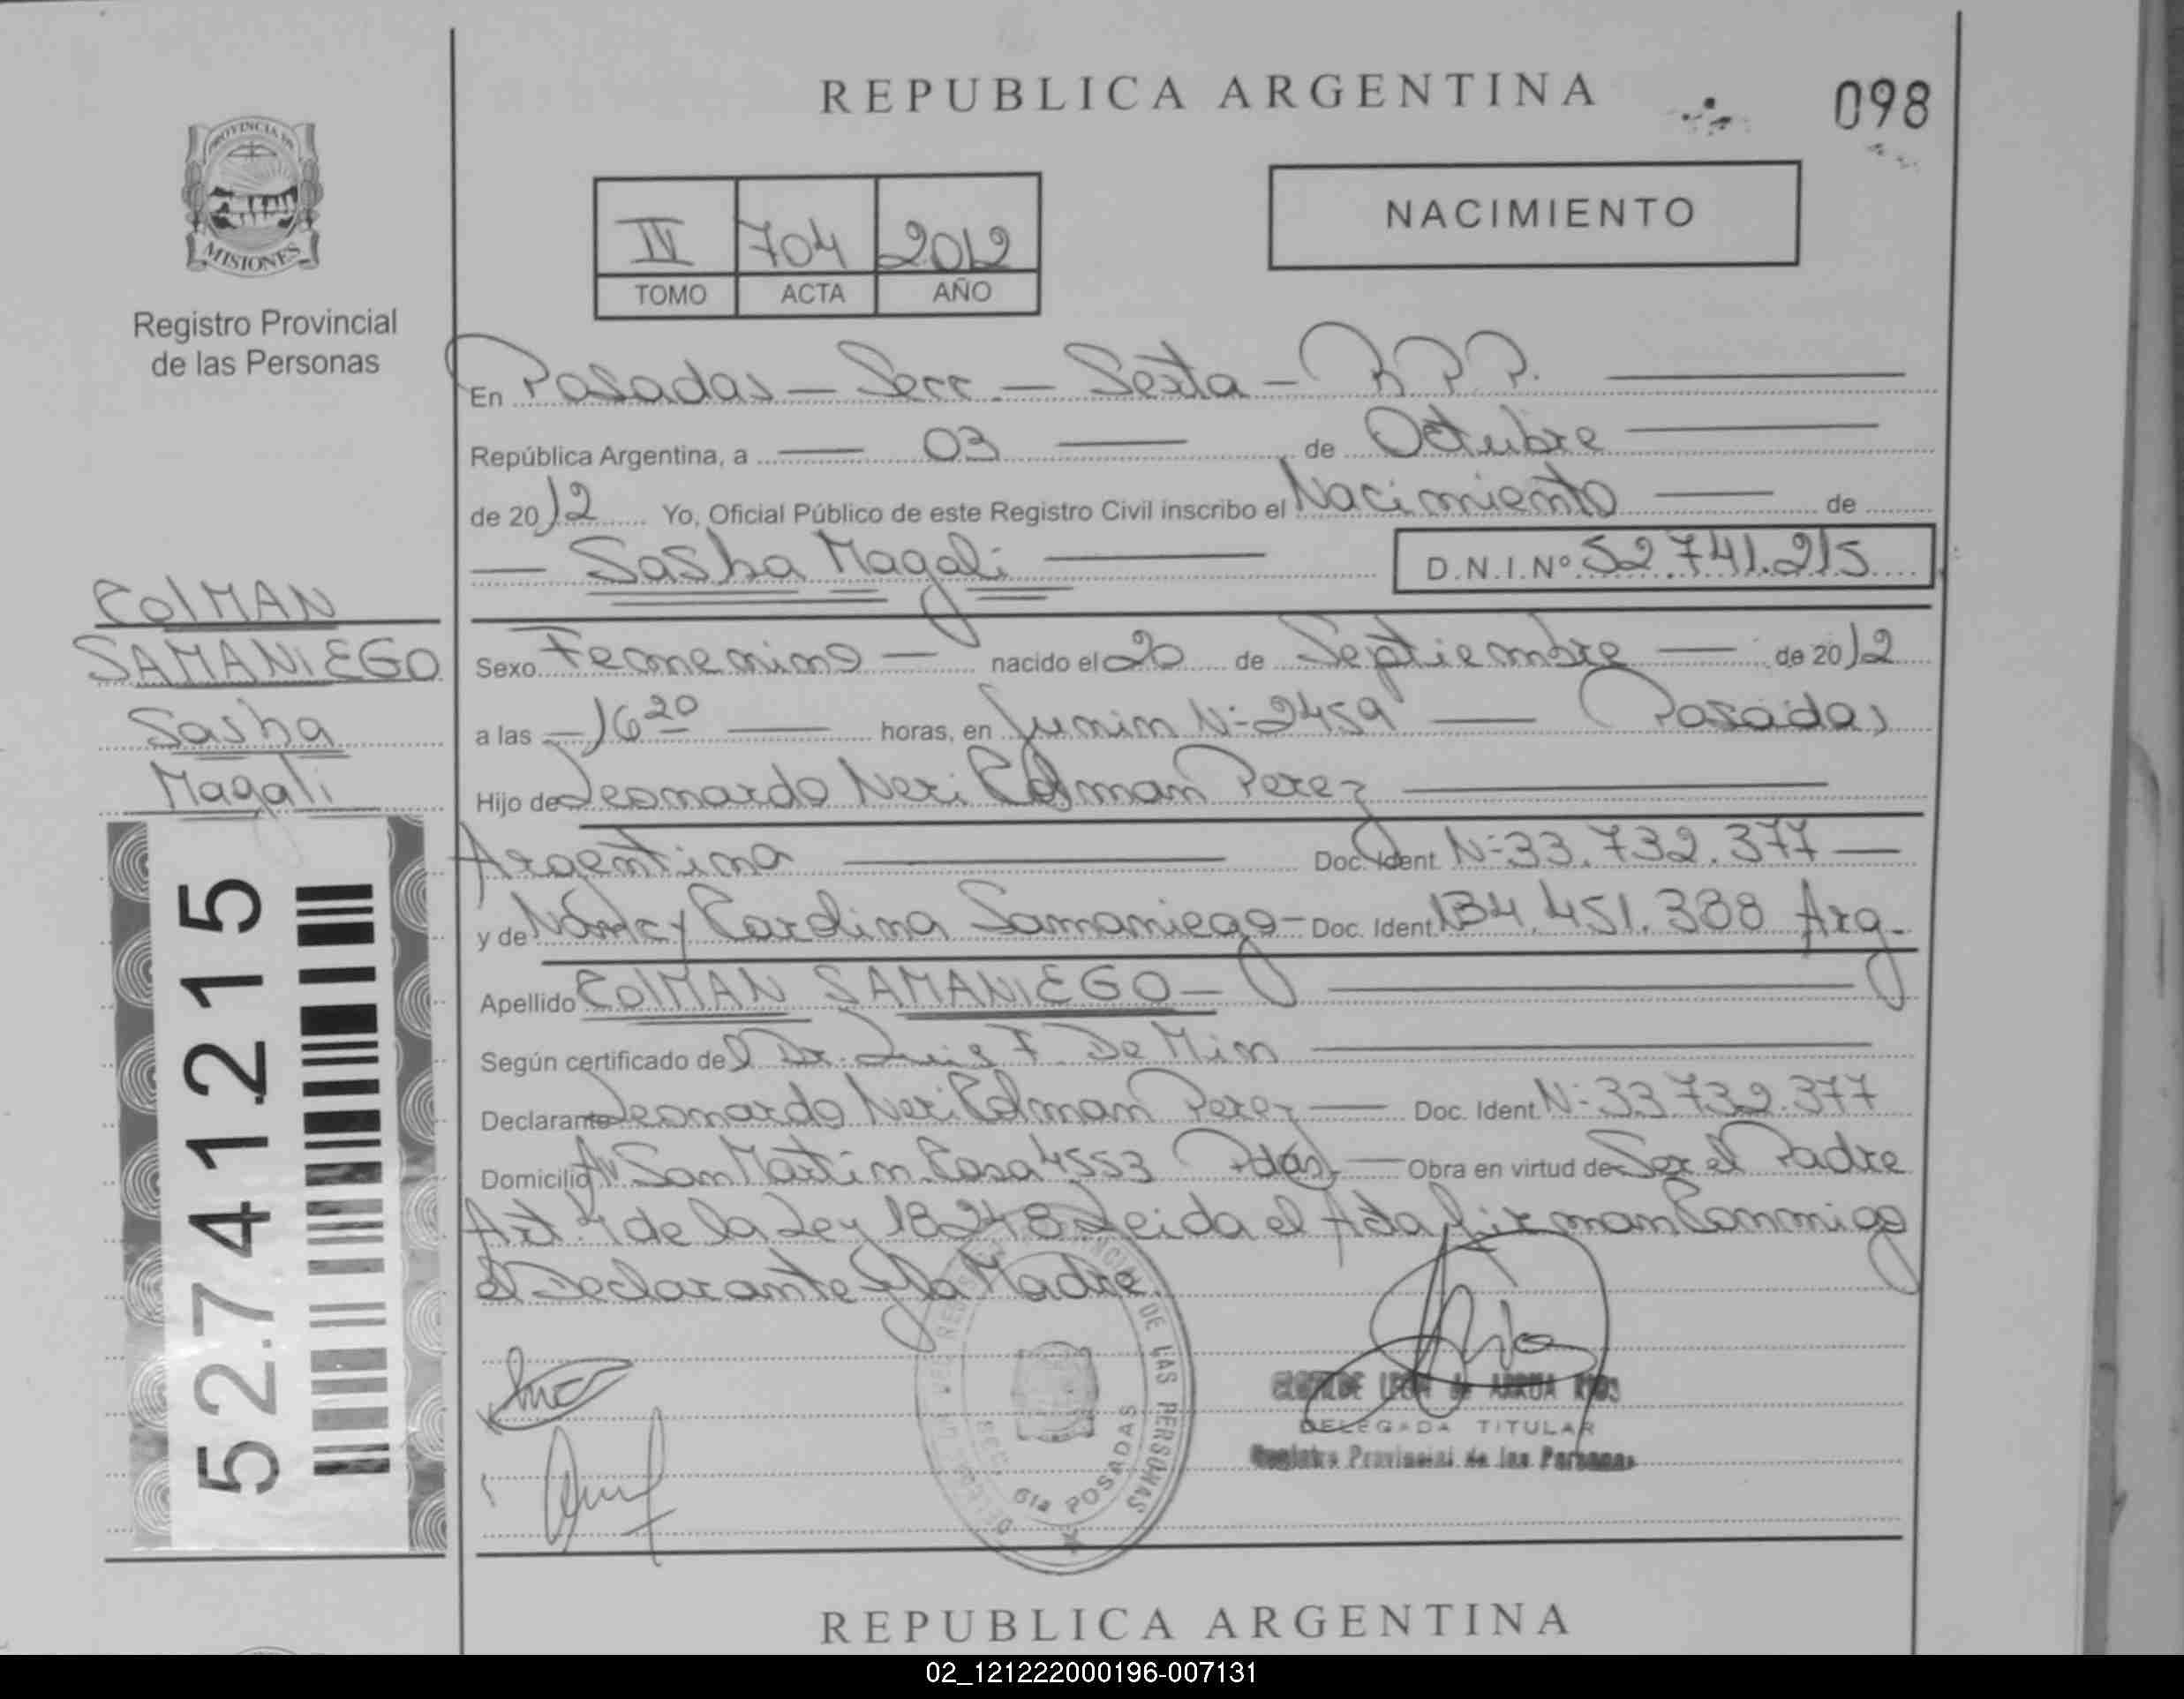 REPUBLICA ARGENTINA
098
PROVINCIA DE
MISIONES
Registro Provincial
de las Personas
IV 704 2012
TOMO ACTA AÑO
NACIMIENTO
En Posadas - Secc. - Sexta - R.P.P.
República Argentina, a 03 de Octubre
de 2012 Yo, Oficial Público de este Registro Civil inscribo el Nacimiento de
Sasha Magali D.N.I.Nº 52.741.215
COlMAN
SAMANIEGO
Sasha
Magali
52.741.215
Sexo Femenino - nacido el 20 de Septiembre de 2012
a las 16 20 horas, en Junin N: 2459 Posadas
Hijo de Leonardo Neri Colman Perez
Argentina Doc. Ident. N: 33.732.377
y de Nancy Carolina Samaniego - Doc. Ident. 34.451.388 Arg.
Apellido COlMAN SAMANIEGO -
Según certificado del Dr. Luis F. De Min
Declarante Leonardo Neri Colman Perez Doc. Ident N: 33.732.377
Domicilio Av San Martin Casa 4553 Pdas. Obra en virtud de Ser el Padre
Art. 4 de la Ley 18248 Leida el Acta firman Conmigo
el Declarante y la Madre.
DE LAS PERSONAS
SECC. 6ta POSADAS
LEON de ARRUA
DELEGADA TITULAR
Registro Provincial de las Personas
REPUBLICA ARGENTINA
02_121222000196-007131